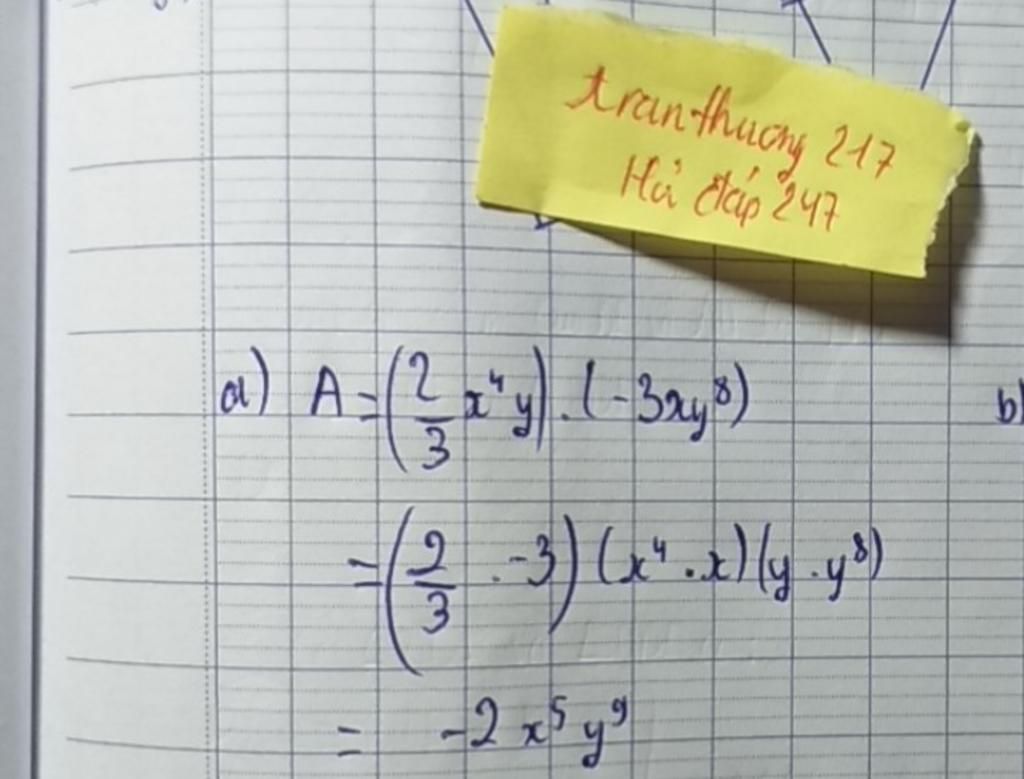 tranthuong 217
Hỏi đáp 247
a) A = (2/3 x⁴y) . (-3xy⁸)
b)
= (2/3 . -3) (x⁴ . x) (y . y⁸)
= -2x⁵y⁹